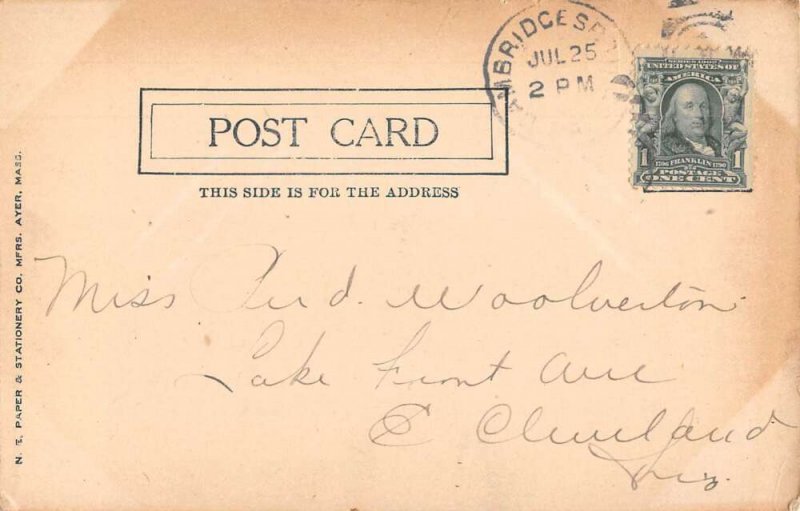 AMBRIDGESP
JUL 25
2 PM
SERIES 1902
UNITED STATES OF
AMERICA
1 1
1706 FRANKLIN 1790
POSTAGE
ONE CENT
POST CARD
THIS SIDE IS FOR THE ADDRESS
N. E. PAPER & STATIONERY CO. MFRS. AYER, MASS.
Miss d. Woolverton
Lake Front Ave
E Cleveland